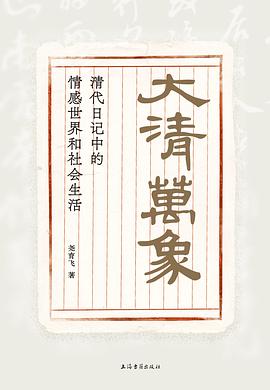 大清萬象
清代日记中的
情感世界和社会生活
尧育飞 著
上海古籍出版社